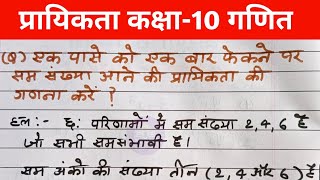 प्रायिकता कक्षा-10 गणित
(8) एक पासे को एक बार फेकने पर
सम संख्या आने की प्रायिकता की
गणना करें ?
हल:- छ: परिणामों में सम संख्या 2,4,6 है
जो सभी समसंभावी है।
सम अंको की संख्या तीन (2,4 और 6) है।